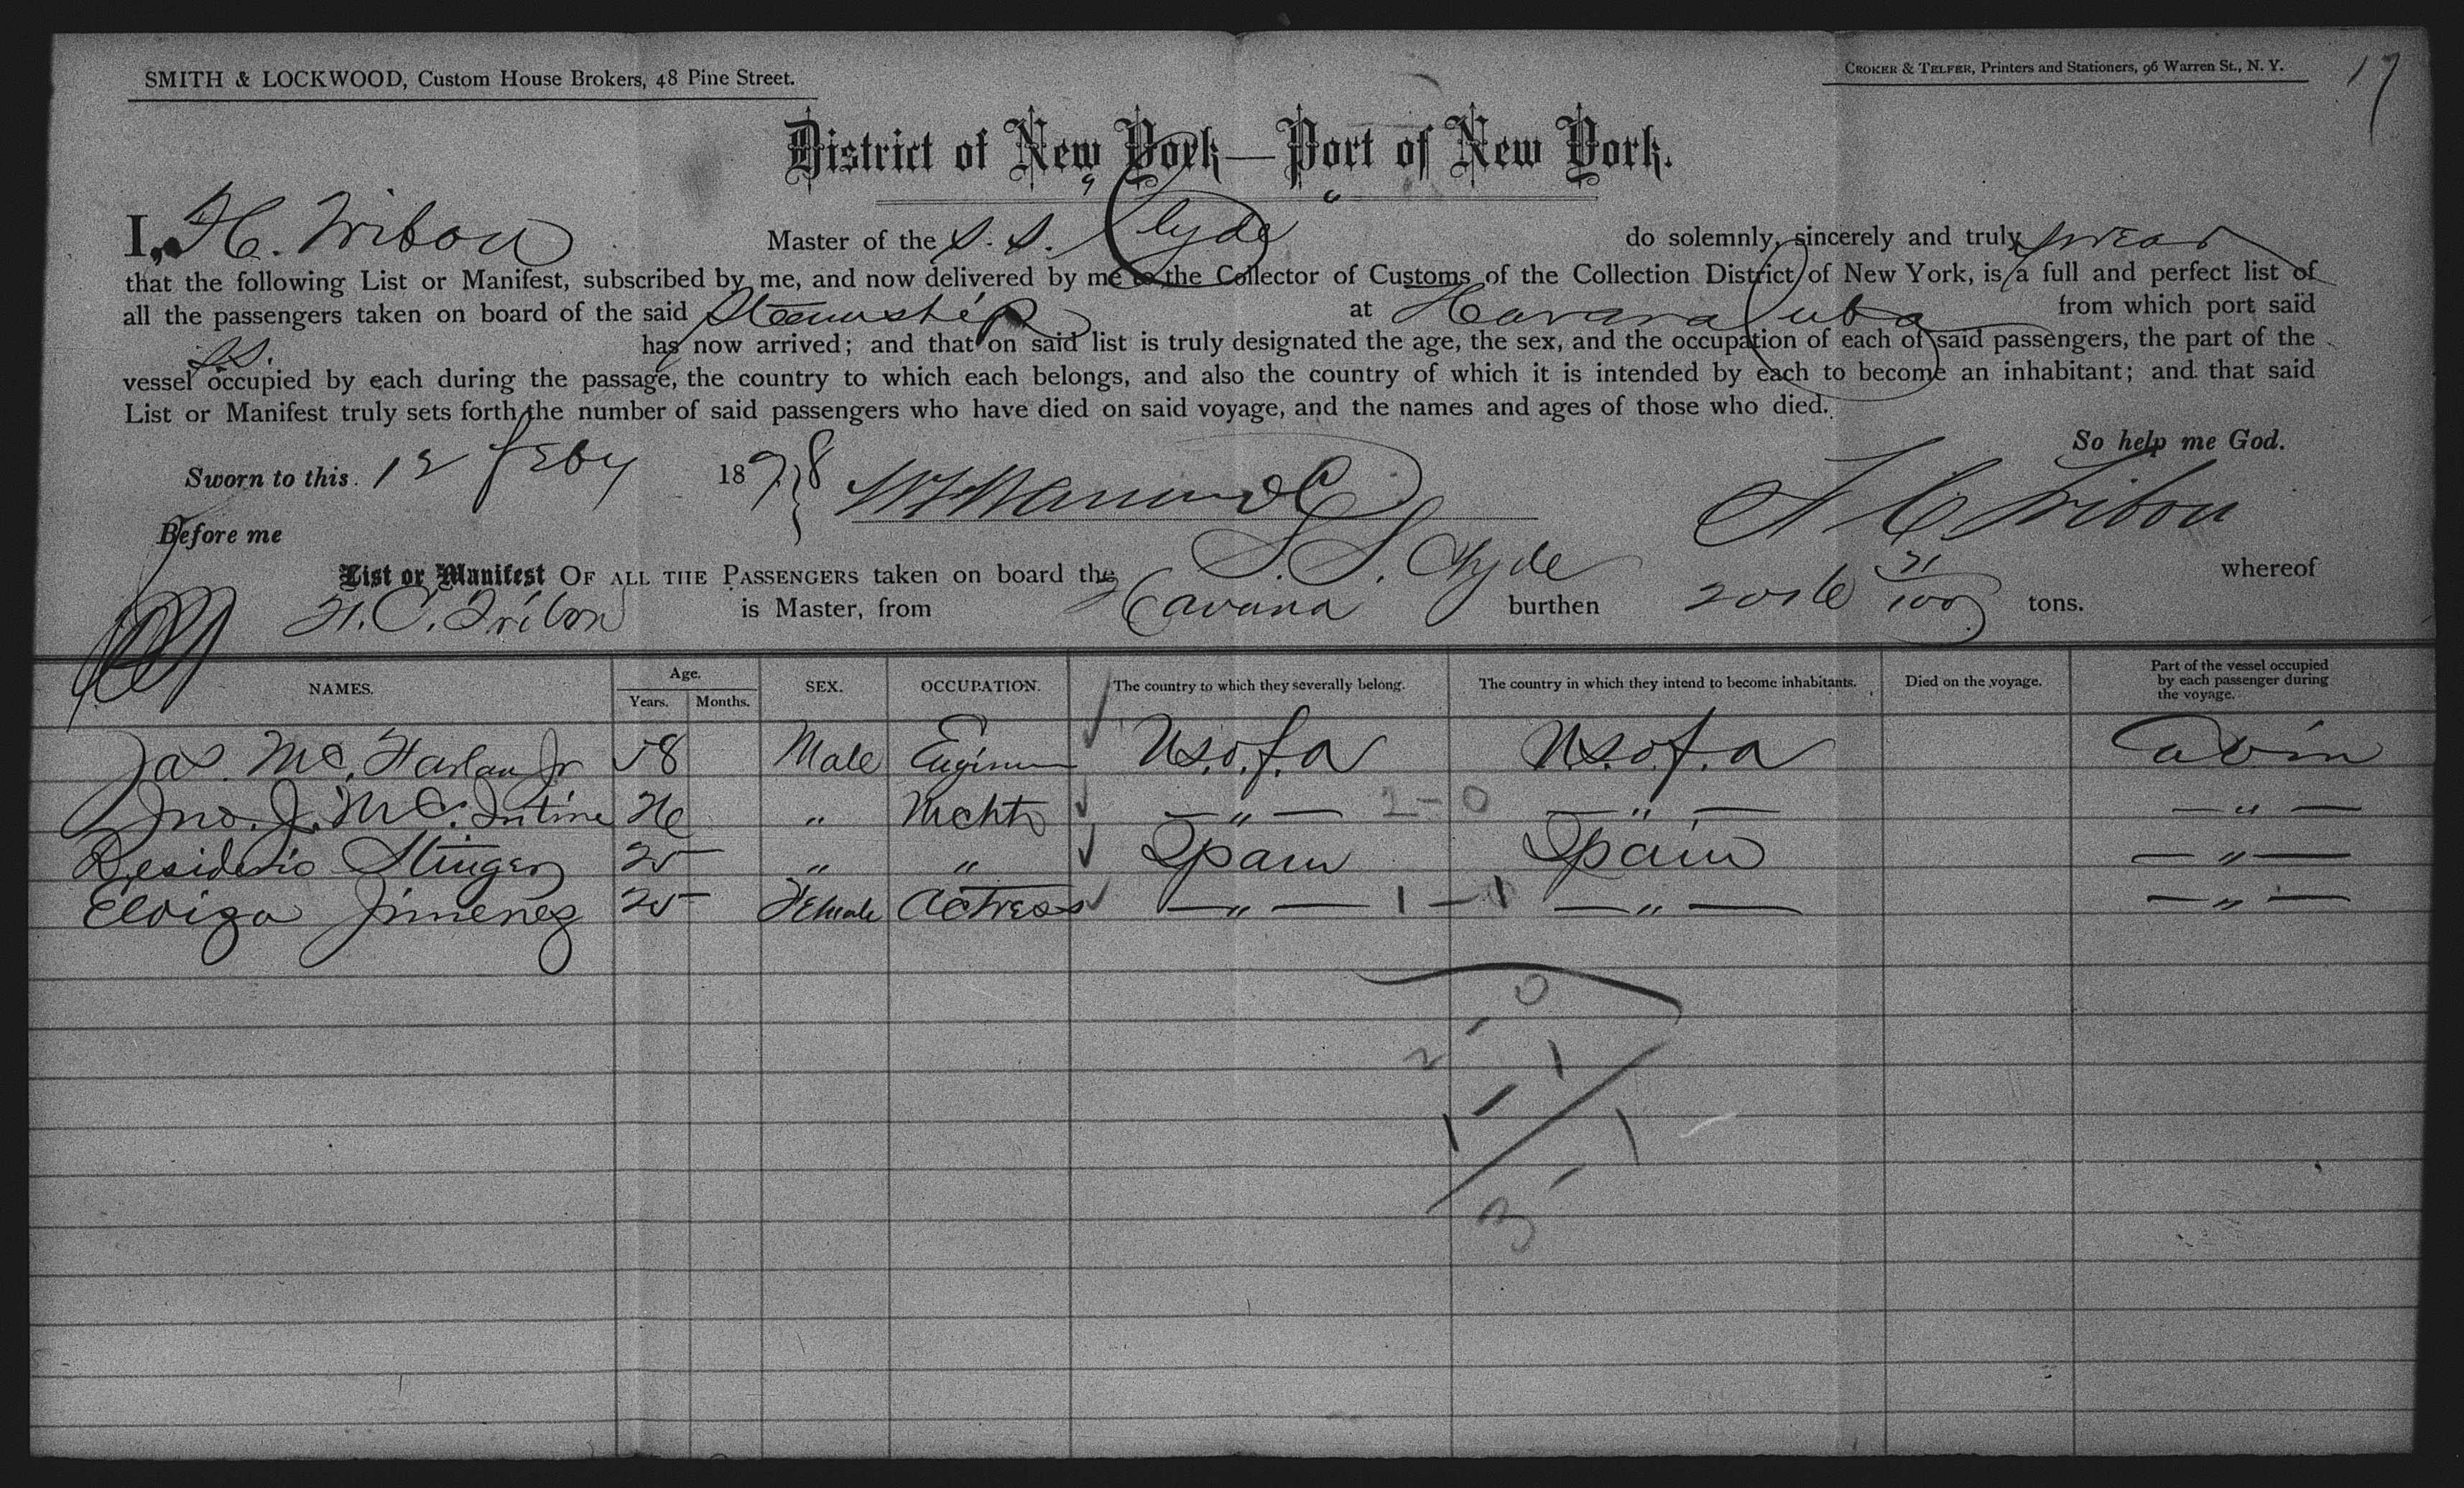 SMITH & LOCKWOOD, Custom House Brokers, 48 Pine Street.
CROKER & TELFER, Printers and Stationers, 96 Warren St., N. Y.
17
District of New York—Port of New York.
I, H. C. Tribou Master of the S. S. Clyde do solemnly, sincerely and truly swear
that the following List or Manifest, subscribed by me, and now delivered by me to the Collector of Customs of the Collection District of New York, is a full and perfect list of
all the passengers taken on board of the said Steamship at Havana Cuba from which port said
S.S. has now arrived; and that on said list is truly designated the age, the sex, and the occupation of each of said passengers, the part of the
vessel occupied by each during the passage, the country to which each belongs, and also the country of which it is intended by each to become an inhabitant; and that said
List or Manifest truly sets forth the number of said passengers who have died on said voyage, and the names and ages of those who died.
So help me God.
Sworn to this 12 Feby 1878
Before me
H C Tribou
List or Manifest OF ALL THE PASSENGERS taken on board the S. S. Clyde whereof
H. C. Tribou is Master, from Havana burthen tons.
NAMES. Age. Years. Months. SEX. OCCUPATION. The country to which they severally belong. The country in which they intend to become inhabitants. Died on the voyage. Part of the vessel occupied by each passenger during the voyage.
Jas. Mc. Harlan Jr 58 Male Engineer U.S.of.a U.S.of.a Cabin
Jno. J. Mc. 26 " Mcht — " — 2-0 — " — — " —
Desiderio Stinger 25 " " Spain Spain — " —
Eloiza Jimenez 25 Female Actress — " — 1-1 — " — — " —
0
2 1
1 1
3